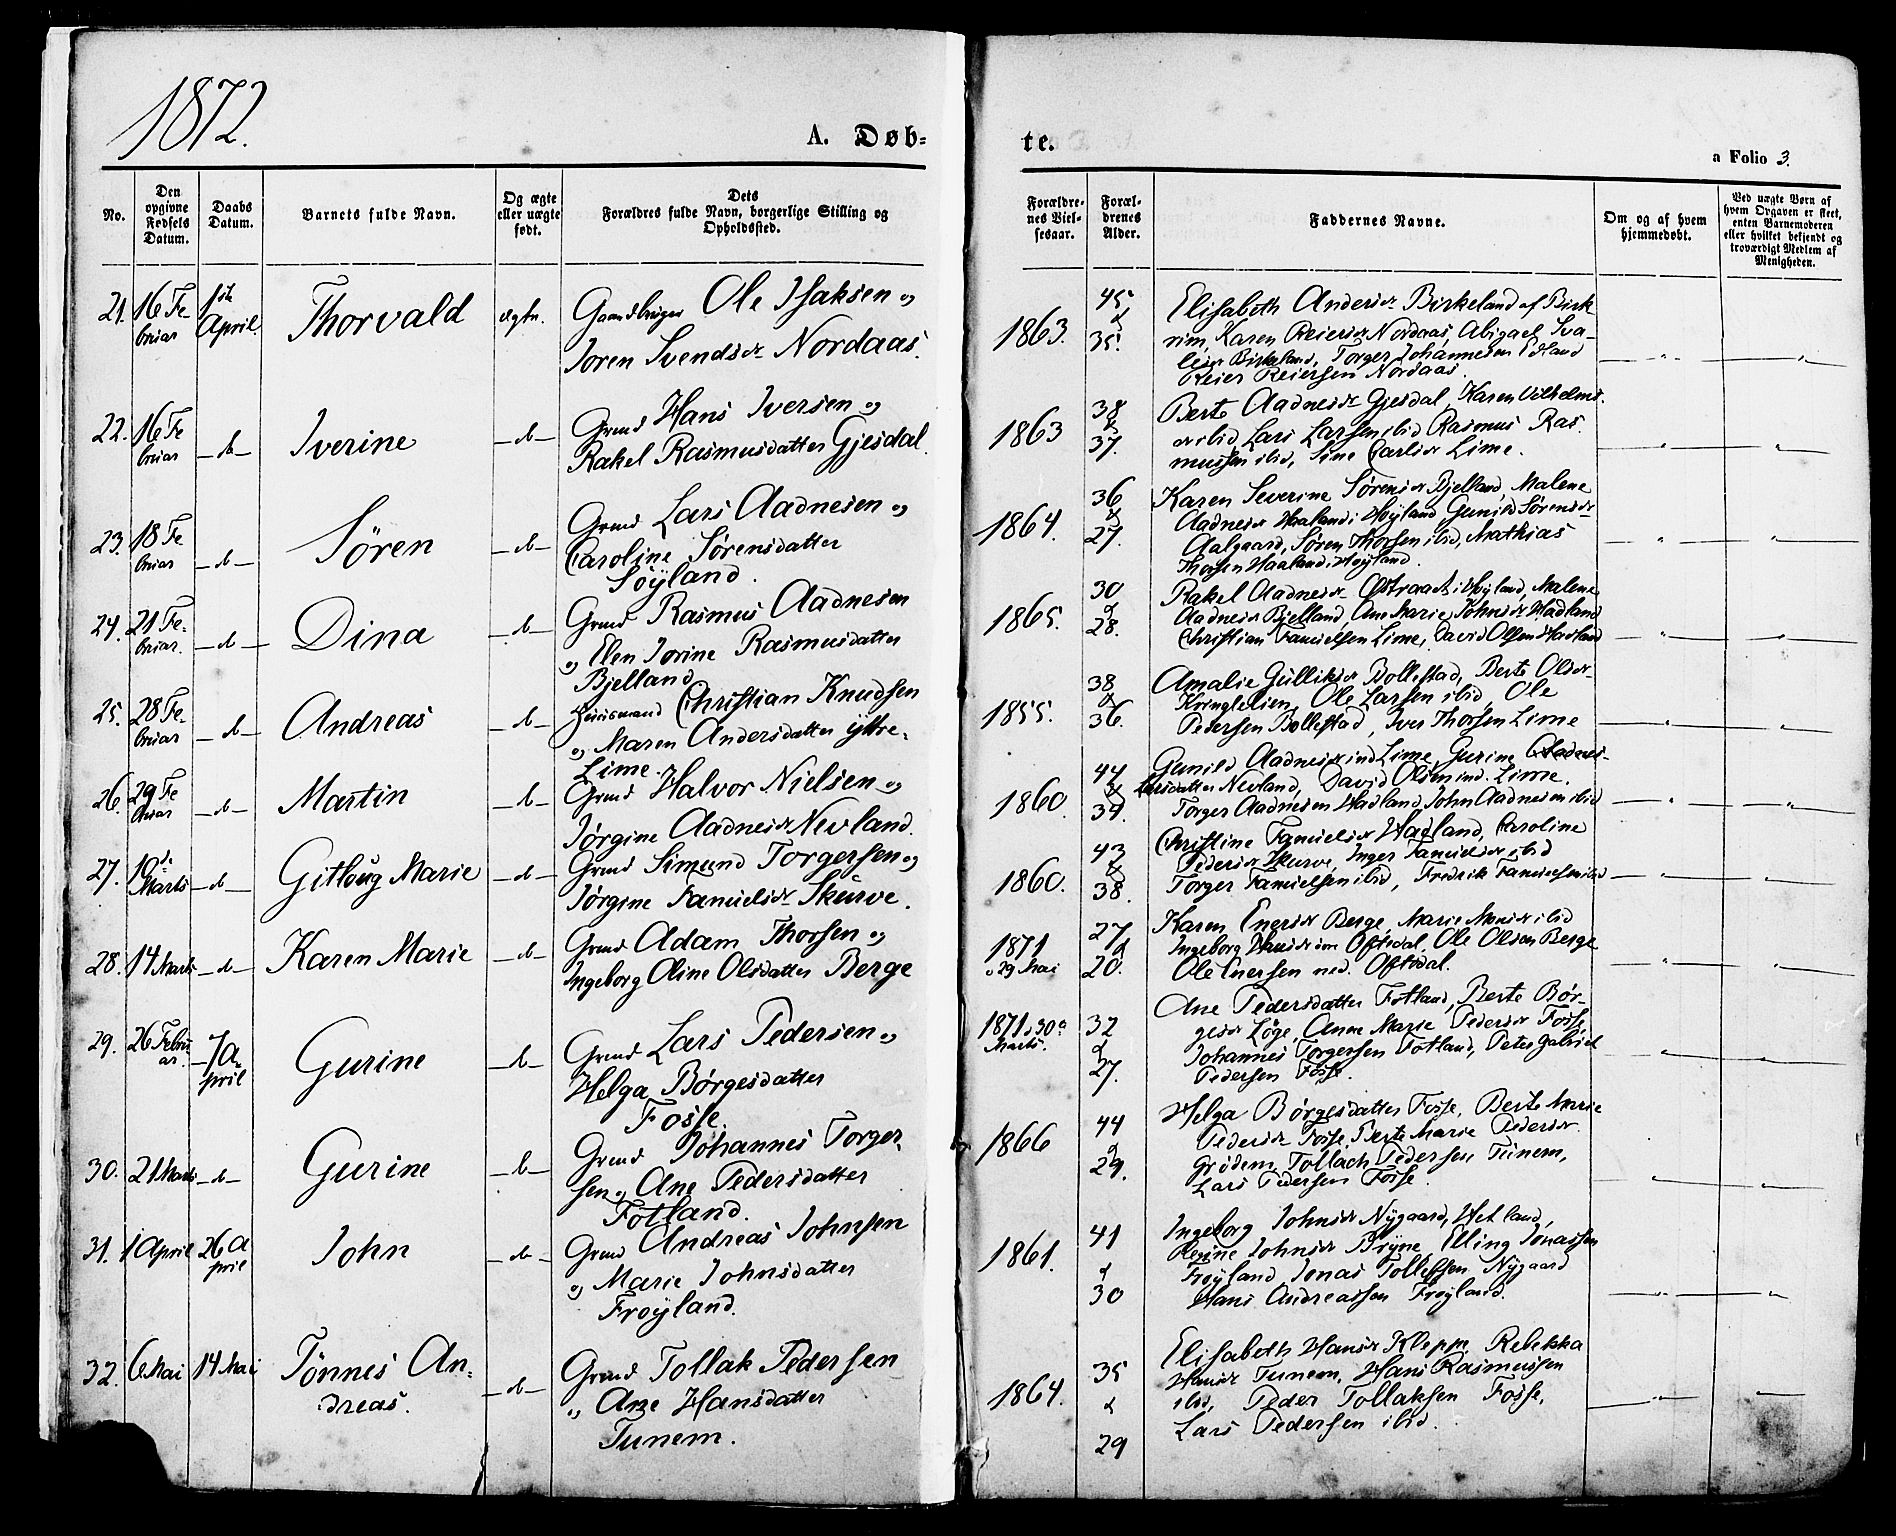 1872.
A. Døb-
te.
a Folio 3.
No.
Den opgivne Fødsels Datum.
Daabs Datum.
Barnets fulde Navn.
Og ægte eller uægte født.
Dets Forældres fulde Navn, borgerlige Stilling og Opholdssted.
Forældrenes Vielsesaar.
Forældrenes Alder.
Faddernes Navne.
Om og af hvem hjemmedøbt.
Ved uægte Børn af hvem Opgaven er skeet, enten Barnemoderen eller hvilket bekjendt og troværdigt Medlem af Menigheden.
21. 16 Fe-
bruar
1ste
April
Thorvald
ægte.
Gaardbruger Ole Isaksen og
Joren Svendsdr Nordaas.
1863.
45
&
35.
Elisabeth Andersdr Birkeland af Birk-
rim, Karen Reiersdr Nordaas, Abigael Iva-
lsdr Birkeland, Torger Johannesen Edland
Reier Reiersen Nordaas.
22. 16 Fe
bruar
-d-
Iverine
-d-
Grmd Hans Iversen og
Rakel Rasmusdatter Gjesdal.
1863
38
&
37.
Berte Aadnesdr Gjesdal, Karen Vilhelms-
dr ibid, Lars Larsen ibid Rasmus Ras-
mussen ibid, Sine Carlsdr Lime.
23. 18 Fe
bruar
-d-
Søren
-d-
Grmd Lars Aadnesen og
Caroline Sørensdatter
Søyland.
1864.
36
&
27.
Karen Severine Sørensdr Bjelland, Malene
Aadnesdr Haaland i Høyland, Gunild Sørensdr
Aalgaard, Søren Thorsen ibid, Mathias
Thorsen Haaland i Høyland.
24. 21 Fe-
bruar.
-d-
Dina
-d-
Grmd Rasmus Aadnesen
og Elen Jorine Rasmusdatter
Bjelland
1865.
30
&
28.
Rakel Aadnesdr Østraadt i Høyland, Malene
Aadnesdr Bjelland, Ane Marie Johnsdr Madland
Christian Tamielsen Lime, David Olsen Madland
25. 28 Fe-
bruar
-d-
Andreas
-d-
Huusmand Christian Knudsen
og Maren Andersdatter yttre-
Lime.
1855.
38
&
36.
Amalie Gülliksdr Bollestad, Berte Olsdr
Kringlelien, Ole Larsen ibid, Ole
Pedersen Bollestad, Iver Thorsen Lime
26. 29 Fe
bruar
-d-
Martin
-d-
Grmd Halvor Nielsen og
Jørgine Aadnesdr Nevland.
1860.
44
&
34.
Gunild Aadnesdr ind Lime, Gurine
datter Nevland, David Olsen ind. Lime,
Torger Aadnesen Madland, John Aadnesen ibid
27. 10de
Marts
-d-
Gitlaug Marie
-d-
Grmd Simund Torgersen og
Jørgine Tamielsdr Skurve.
1860.
43
&
38.
Christine Tamielsdr Madland, Caroline
Pedersdr Skurve, Inger Tamielsdr ibid
Torger Tamielsen ibid, Fredrik Tamielsen ibid
28. 14 Marts
-d-
Karen Marie
-d-
Grmd Adam Thorsen og
Ingeborg Oline Olsdatter Berge
1871
29 Mai
27
&
20.
Karen Enersdr Berge, Marie Monsdr ibid
Ingeborg Oftedal, Ole Olsen Berge
Ole Enersen ned. Oftedal.
29. 26 Febru
ar.
7 A-
pril
Gurine
-d-
Grmd Lars Pedersen og
Helga Børgesdatter
Fosse.
1871 30te
Marts.
32
&
27.
Ane Pedersdatter Fotland, Berte Bør-
gesdr Løge, Anne Marie Pedersdr Fosse,
Johannes Torgersen Fotland, Peter Gabriel
Pedersen Fosse.
30. 21 Marts
-d-
Gurine
-d-
Grmd Johannes Torger-
sen og Ane Pedersdatter
Fotland.
1866
44
&
29.
Helga Børgesdatter Fosse, Berte Marie
Pedersdr Fosse, Berte Marie Pedersdr
Grødem, Tollach Pedersen Tunem,
Lars Pedersen Fosse.
31. 1 April
26 A
pril
John
-d-
Grmd Andreas Johnsen
og Marie Johnsdatter
Frøyland.
1861.
41
&
30
Ingeborg Johnsdr Nygaard, Hetland,
Regine Johnsdr Bryne, Elling Jonassen
Frøyland, Jonas Tollefsen Nygaard
Hans Andreassen Frøyland.
32. 6 Mai
14 Mai
Tønnes An-
dreas.
-d-
Grmd Tollak Pedersen
og Ane Hansdatter
Tunem.
1864.
35
&
29
Elisabeth Hansdr Kleppe, Rebekka
Hansdr Tunem, Hans Rasmussen
ibid, Peder Tollaksen Fosse,
Lars Pedersen ibid.